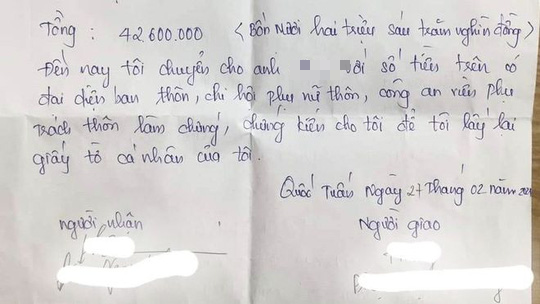 Tổng : 42.600.000 < Bốn mươi hai triệu sáu trăm nghìn đồng >
Đến nay tôi chuyển cho anh với số tiền trên có
đại diện ban thôn, chi hội phụ nữ thôn, công an viên phụ
trách thôn làm chứng, chứng kiến cho tôi để tôi lấy lại
giấy tờ cá nhân của tôi.
Quốc Tuấn Ngày 27 Tháng 02 năm
người nhận
Người giao